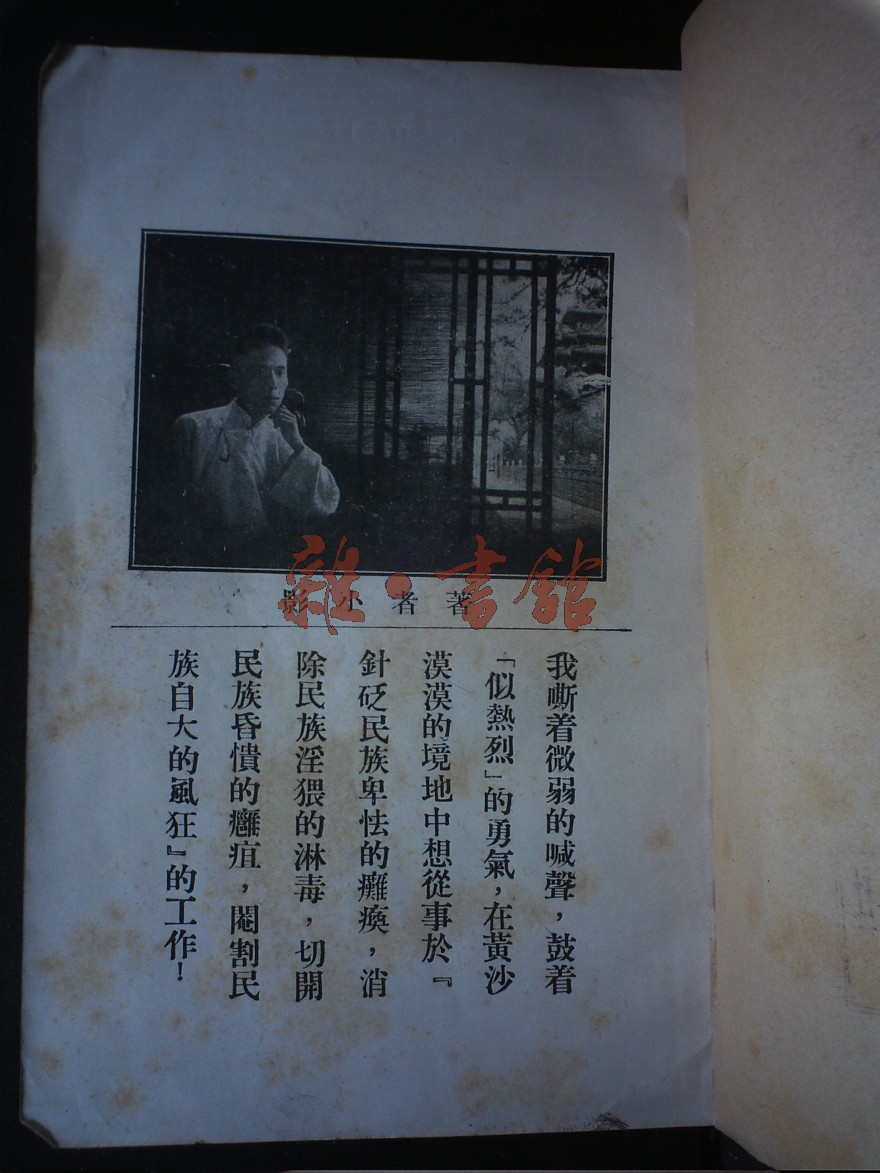 著者小影
雜·書館
我嘶着微弱的喊聲，鼓着
「似熱烈」的勇氣，在黃沙
漠漠的境地中想從事於『
針砭民族卑怯的癱瘓，消
除民族淫猥的淋毒，切開
民族昏憒的癰疽，閹割民
族自大的風狂』的工作！